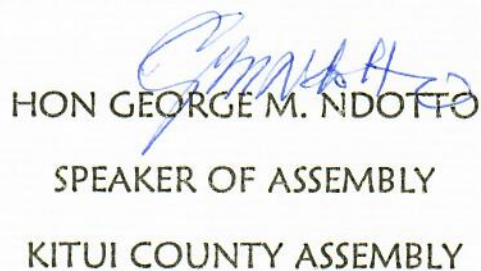 HON GEORGE M. NDOTTO
SPEAKER OF ASSEMBLY
KITUI COUNTY ASSEMBLY